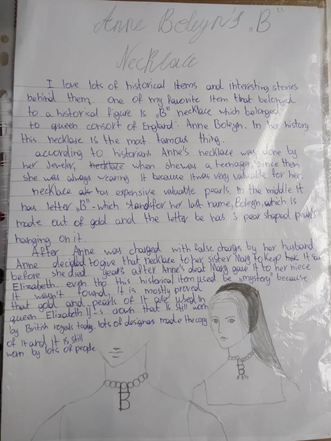 Anne Boleyn's „B"
Necklace
I love lots of historical items and interesting stories
behind them. One of my favorite item that belonged
to a historical figure is „B" necklace which belonged
to queen consort of England - Anne Boleyn. In her history
this necklace is the most famous thing.
according to historians Anne's necklace was done by
her Jeweler, when she was a teenager, since then
she was always wearing it because it was very valuable for her.
necklace has expensive valuable pearls. In the middle it
has letter „B" - which stands for her last name, Boleyn, which is
made out of gold and the letter be has 3 pear shaped pearls
hanging on it.
After Anne was charged with false charges by her husband
Anne decided to give that necklace to her sister Mary to keep it
before she died. years after Anne's deat Mary gave it to her niece
Elizabeth. even tho this historical item is mystery because
it wasn't found, it is mostly proved
that and pearls of it are used in
queen Elizabeth II's crown that is still worn
by British royals today. lots of designers made the copy
of it and it is still
worn by lots of people
B
B